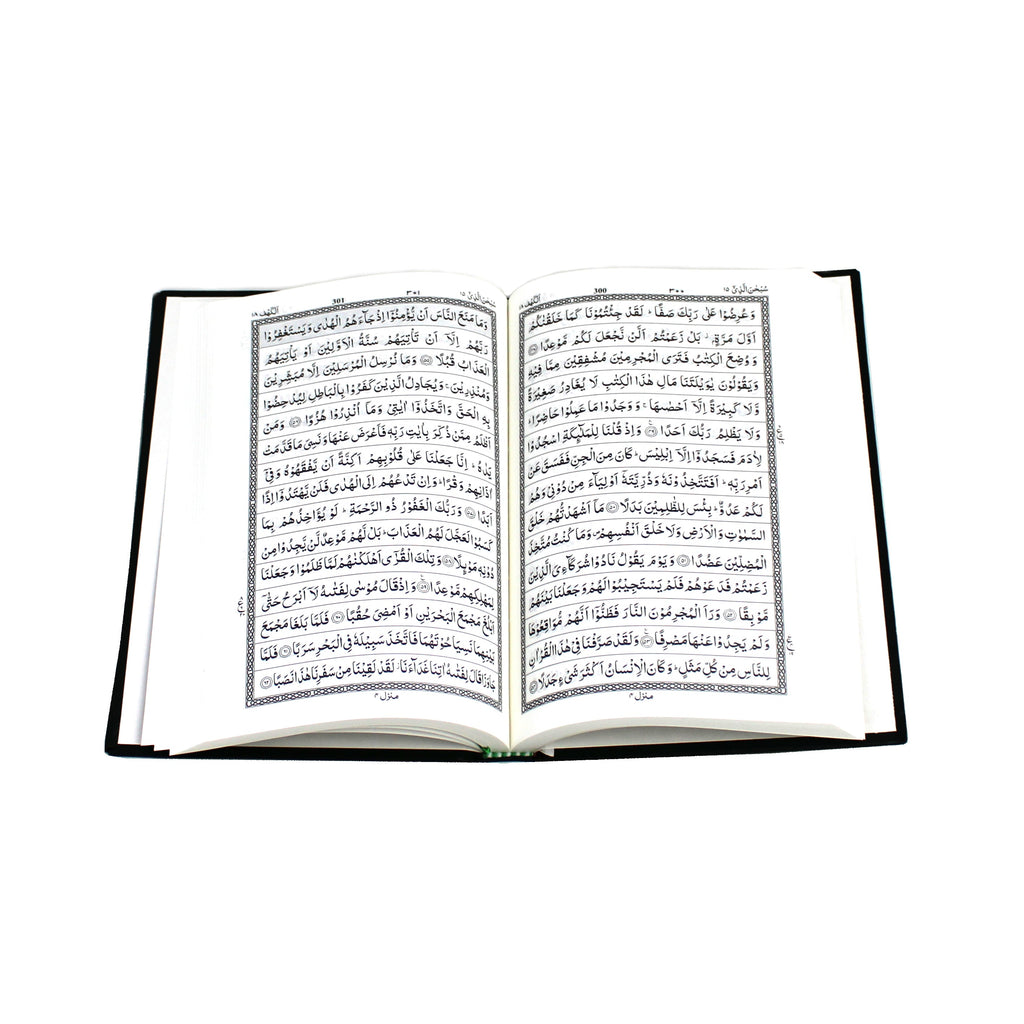 سُبْحٰنَ الَّذِیْۤ ١٥ ٣٠٠ 300 اَلْكَهْف ١٨
وَعُرِضُوْا عَلٰى رَبِّكَ صَفًّا ؕ لَقَدْ جِئْتُمُوْنَا كَمَا خَلَقْنٰكُمْ
اَوَّلَ مَرَّةٍۭ ؗ بَلْ زَعَمْتُمْ اَلَّنْ نَّجْعَلَ لَكُمْ مَّوْعِدًا ﴿٤٨﴾
وَ وُضِعَ الْكِتٰبُ فَتَرَى الْمُجْرِمِیْنَ مُشْفِقِیْنَ مِمَّا فِیْهِ
وَیَقُوْلُوْنَ یٰوَیْلَتَنَا مَالِ هٰذَا الْكِتٰبِ لَا یُغَادِرُ صَغِیْرَةً
وَّلَا كَبِیْرَةً اِلَّاۤ اَحْصٰىهَا ۚ وَ وَجَدُوْا مَا عَمِلُوْا حَاضِرًا ؕ
وَلَا یَظْلِمُ رَبُّكَ اَحَدًا ﴿٤٩﴾ وَاِذْ قُلْنَا لِلْمَلٰٓئِكَةِ اسْجُدُوْا
لِاٰدَمَ فَسَجَدُوْۤا اِلَّاۤ اِبْلِیْسَ ؕ كَانَ مِنَ الْجِنِّ فَفَسَقَ عَنْ
اَمْرِ رَبِّهٖ ؕ اَفَتَتَّخِذُوْنَهٗ وَذُرِّیَّتَهٗۤ اَوْلِیَآءَ مِنْ دُوْنِیْ وَهُمْ
لَكُمْ عَدُوٌّ ؕ بِئْسَ لِلظّٰلِمِیْنَ بَدَلًا ﴿٥٠﴾ مَاۤ اَشْهَدْتُّهُمْ خَلْقَ
السَّمٰوٰتِ وَالْاَرْضِ وَلَا خَلْقَ اَنْفُسِهِمْ ۪ وَمَا كُنْتُ مُتَّخِذَ
الْمُضِلِّیْنَ عَضُدًا ﴿٥١﴾ وَیَوْمَ یَقُوْلُ نَادُوْا شُرَكَآءِیَ الَّذِیْنَ
زَعَمْتُمْ فَدَعَوْهُمْ فَلَمْ یَسْتَجِیْبُوْا لَهُمْ وَجَعَلْنَا بَیْنَهُمْ
مَّوْبِقًا ﴿٥٢﴾ وَرَاَ الْمُجْرِمُوْنَ النَّارَ فَظَنُّوْۤا اَنَّهُمْ مُّوَاقِعُوْهَا
وَلَمْ یَجِدُوْا عَنْهَا مَصْرِفًا ﴿٥٣﴾ وَلَقَدْ صَرَّفْنَا فِیْ هٰذَا الْقُرْاٰنِ
لِلنَّاسِ مِنْ كُلِّ مَثَلٍ ؕ وَكَانَ الْاِنْسَانُ اَكْثَرَ شَیْءٍ جَدَلًا ﴿٥٤﴾
منزل ٤
سُبْحٰنَ الَّذِیْۤ ١٥ ٣٠١ 301 اَلْكَهْف ١٨
وَمَا مَنَعَ النَّاسَ اَنْ یُّؤْمِنُوْۤا اِذْ جَآءَهُمُ الْهُدٰى وَیَسْتَغْفِرُوْا
رَبَّهُمْ اِلَّاۤ اَنْ تَاْتِیَهُمْ سُنَّةُ الْاَوَّلِیْنَ اَوْ یَاْتِیَهُمُ
الْعَذَابُ قُبُلًا ﴿٥٥﴾ وَمَا نُرْسِلُ الْمُرْسَلِیْنَ اِلَّا مُبَشِّرِیْنَ
وَمُنْذِرِیْنَ ۚ وَیُجَادِلُ الَّذِیْنَ كَفَرُوْا بِالْبَاطِلِ لِیُدْحِضُوْا
بِهِ الْحَقَّ وَاتَّخَذُوْۤا اٰیٰتِیْ وَمَاۤ اُنْذِرُوْا هُزُوًا ﴿٥٦﴾ وَمَنْ
اَظْلَمُ مِمَّنْ ذُكِّرَ بِاٰیٰتِ رَبِّهٖ فَاَعْرَضَ عَنْهَا وَنَسِیَ مَا قَدَّمَتْ
یَدٰهُ ؕ اِنَّا جَعَلْنَا عَلٰى قُلُوْبِهِمْ اَكِنَّةً اَنْ یَّفْقَهُوْهُ وَفِیْۤ
اٰذَانِهِمْ وَقْرًا ؕ وَاِنْ تَدْعُهُمْ اِلَى الْهُدٰى فَلَنْ یَّهْتَدُوْۤا اِذًا
اَبَدًا ﴿٥٧﴾ وَرَبُّكَ الْغَفُوْرُ ذُو الرَّحْمَةِ ؕ لَوْ یُؤَاخِذُهُمْ بِمَا
كَسَبُوْا لَعَجَّلَ لَهُمُ الْعَذَابَ ؕ بَلْ لَّهُمْ مَّوْعِدٌ لَّنْ یَّجِدُوْا مِنْ
دُوْنِهٖ مَوْىِٕلًا ﴿٥٨﴾ وَتِلْكَ الْقُرٰۤى اَهْلَكْنٰهُمْ لَمَّا ظَلَمُوْا وَجَعَلْنَا
لِمَهْلِكِهِمْ مَّوْعِدًا ﴿٥٩﴾ وَاِذْ قَالَ مُوْسٰى لِفَتٰىهُ لَاۤ اَبْرَحُ حَتّٰۤى
اَبْلُغَ مَجْمَعَ الْبَحْرَیْنِ اَوْ اَمْضِیَ حُقُبًا ﴿٦٠﴾ فَلَمَّا بَلَغَا مَجْمَعَ
بَیْنِهِمَا نَسِیَا حُوْتَهُمَا فَاتَّخَذَ سَبِیْلَهٗ فِی الْبَحْرِ سَرَبًا ﴿٦١﴾ فَلَمَّا
جَاوَزَا قَالَ لِفَتٰىهُ اٰتِنَا غَدَآءَنَا ؗ لَقَدْ لَقِیْنَا مِنْ سَفَرِنَا هٰذَا نَصَبًا ﴿٦٢﴾
منزل ٤